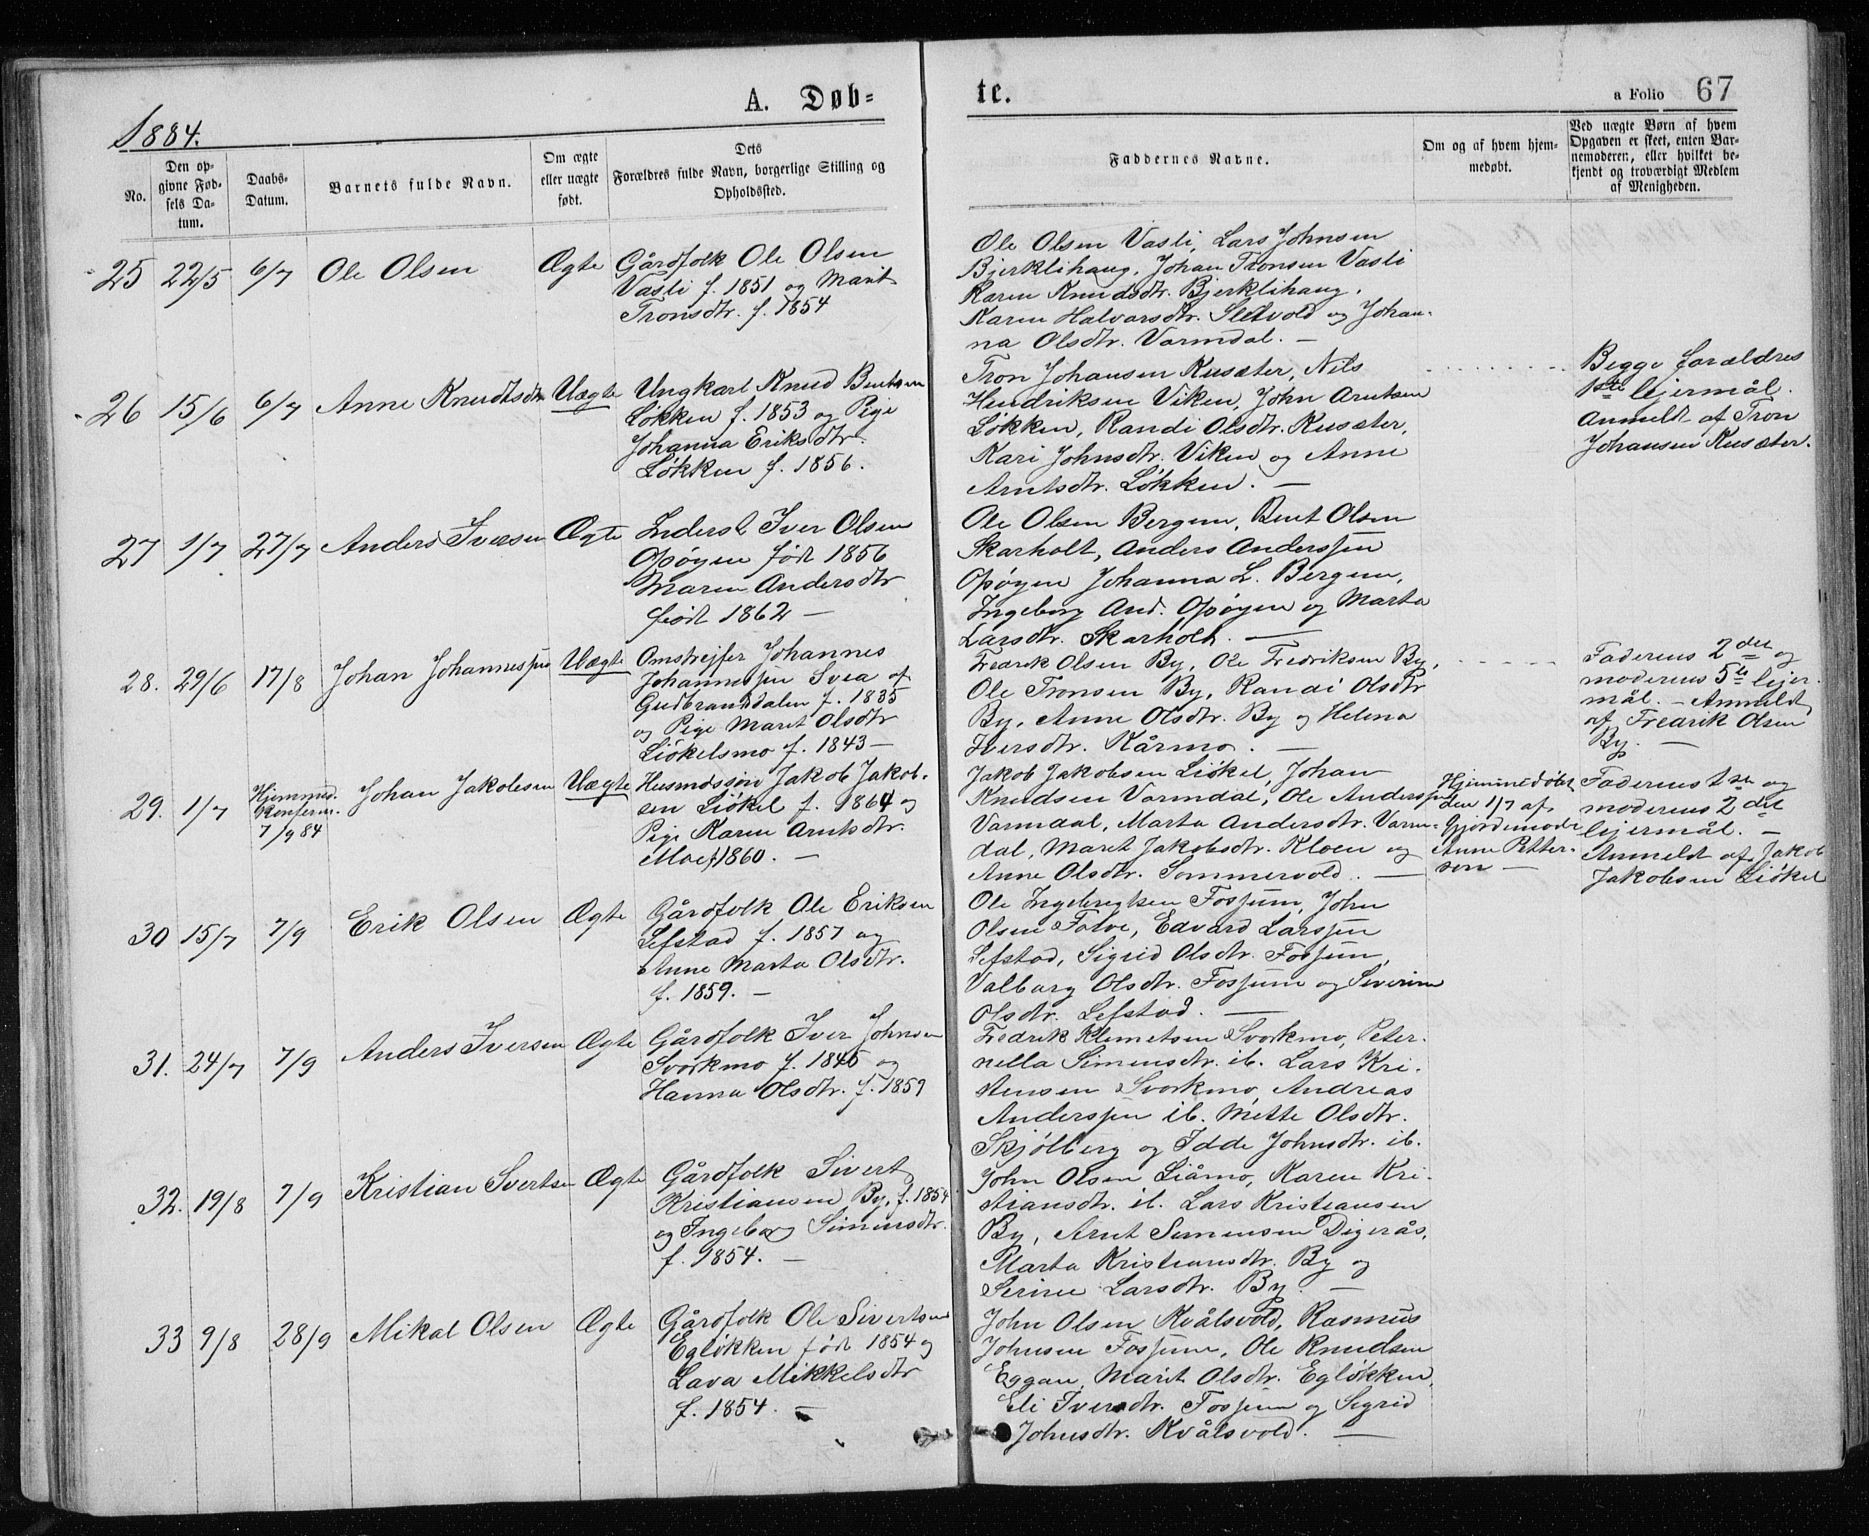 1884.
A. Døb-
te.
a Folio 67
No.
Den op-
givne Fød-
sels Da-
tum.
Daabs-
Datum.
Barnets fulde Navn.
Om ægte
eller uægte
født.
Dets
Forældres fulde Navn, borgerlige Stilling og
Opholdssted.
Faddernes Navne.
Om og af hvem hjem-
medøbt.
Ved uægte Børn af hvem
Opgaven er skeet, enten Bar-
nemoderen, eller hvilket be-
kjendt og troværdigt Medlem
af Menigheden.
25 22/5 6/7 Ole Olsen Ægte
Gårdfolk Ole Olsen
Vasli f. 1851 og Marit
Tronsdtr. f. 1854
Ole Olsen Vasli, Lars Johnsen
Bjerklihaug, Johan Tronsen Vasli
Karen Knudsdtr. Bjerklihaug,
Karen Halvarsdtr. Sletvold og Johan-
na Olsdtr. Varmdal. —
26 15/6 6/7 Anne Knudtsdtr Uægte
Ungkarl Knud Bentsen
Løkken f. 1853 og Pige
Johanna Eriksdtr.
Løkken f. 1856.
Tron Johansen Kusæter, Nils
Hendriksen Viken, John Arntsen
Løkken, Randi Olsdtr. Kusæter,
Kari Johnsdtr. Viken og Anne
Arntsdtr. Løkken. —
Begge forældres
1ste lejermål.
Anmeldt af Tron
Johansen Kusæter.
27 1/7 27/7 Anders Iversen Ægte
Inderst Iver Olsen
Opøyen født 1856
Maren Andersdtr
født 1862 —
Ole Olsen Bergum, Bent Olsen
Skarholt, Anders Anderssen
Opøyen Johanna L. Bergum,
Ingeborg And. Opøyen og Marta
Larsdtr. Skarholt. —
28. 29/6 17/8 Johan Johannessen Uægte
Omstrejfer Johannes
Johannessen Svea af
Gudbrandsdalen f. 1835
og Pige Maret Olsdtr
Liøkelsmo f. 1843 —
Fredrik Olsen By, Ole Fredriksen By,
Ole Tronsen By, Randi Olsdtr
By, Anne Olsdtr. By og Helena
Iversdtr. Kårmo. —
Faderens 2den og
moderens 5te lejer-
mål. — Anmeldt
af Fredrik Olsen
By. —
29. 1/7 Hjemmed.
Konferm.
7/9 84
Johan Jakobsen Uægte
Husmdssøn Jakob Jakob-
sen Liøkel f. 1864 og
Pige Karen Arntsdtr.
Moe f 1860. —
Jakob Jakobsen Liøkel, Johan
Knudsen Varmdal, Ole Anderssen
Varmdal, Marta Andersdtr. Varm-
dal, Maret Jakobsdtr. Kloen og
Anne Olsdtr. Sommervold. —
Hjemmedøbt
den 1/7 af
Gjordemoder
Anne Petter-
sen —
Faderens 1ste og
moderens 2det
lejermål. —
Anmeldt af Jakob
Jakobsen Liøkel
30 15/7 7/9 Erik Olsen Ægte
Gårdfolk Ole Eriksen
Lefstad f. 1857 og
Anne Marta Olsdtr.
f. 1859. —
Ole Ingebrigtsen Fossum, John
Olsen Folve, Edvard Larssen
Lefstad, Sigrid Olsdtr. Fossum,
Valborg Olsdtr. Fossum og Siverine
Olsdtr. Lefstad. —
31. 24/7 7/9 Anders Iversen Ægte
Gårdfolk Iver Johnsen
Svorkmo f. 1845 og
Hanna Olsdtr. f. 1859
Fredrik Klemetsen Svorkmo, Peter-
nella Simensdtr. ib. Lars Kri-
stensen Svorkmo, Andreas
Anderssen ib. Mette Olsdtr.
Skjølberg og Idde Johnsdtr. ib.
32. 19/8 7/9 Kristian Svertsen Ægte
Gårdfolk Sivert
Kristiansen By, f. 1854
og Ingeborg Simensdtr.
f. 1854. —
John Olsen Liåmo, Karen Kri-
stiansdtr. ib. Lars Kristiansen
By, Arnt Simensen Digerås,
Marta Kristiansdtr. By og
Serine Larsdtr. By. —
33 9/8 28/9 Mikal Olsen Ægte
Gårdfolk Ole Sivertsen
Egløkken født 1854 og
Lava Mikkelsdtr
f. 1854. —
John Olsen Kvålsvold, Rasmus
Johnsen Fossum, Ole Knudsen
Eggan, Marit Olsdtr. Egløkken,
Eli Iversdtr. Fossum og Sigrid
Johnsdtr. Kvålsvold. —